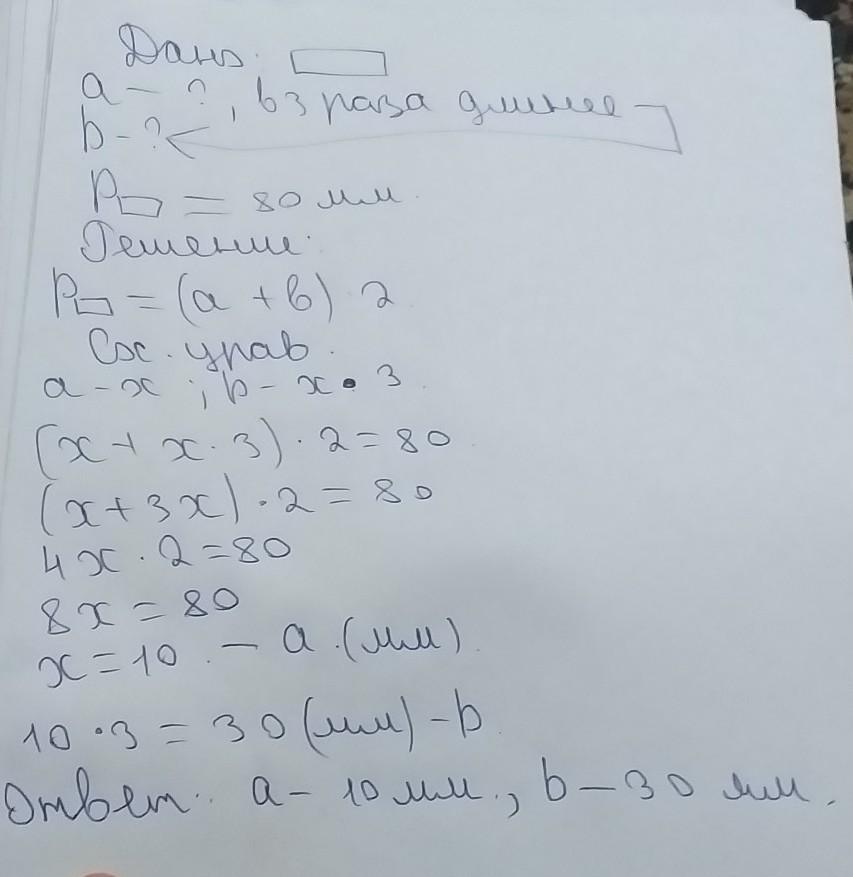 Дано:
a - ?, в 3 раза длиннее
b - ?
P = 80 мм.
Решение:
P = (a + b) · 2
Сос. урав.
a - x ; b - x · 3.
(x + x · 3) · 2 = 80
(x + 3x) · 2 = 80
4x · 2 = 80
8x = 80
x = 10 - a (мм).
10 · 3 = 30 (мм) - b
Ответ: a - 10 мм, b - 30 мм.